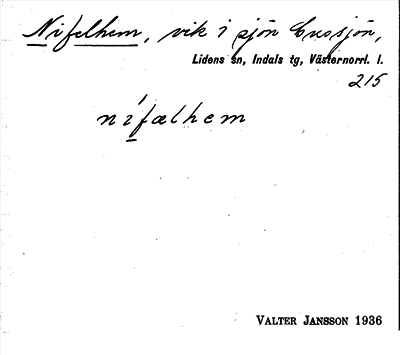 Nifelhem, vik i sjön Cussjön,
Lidens sn, Indals tg, Västernorrl. l.
215
nífælhem
VALTER JANSSON 1936